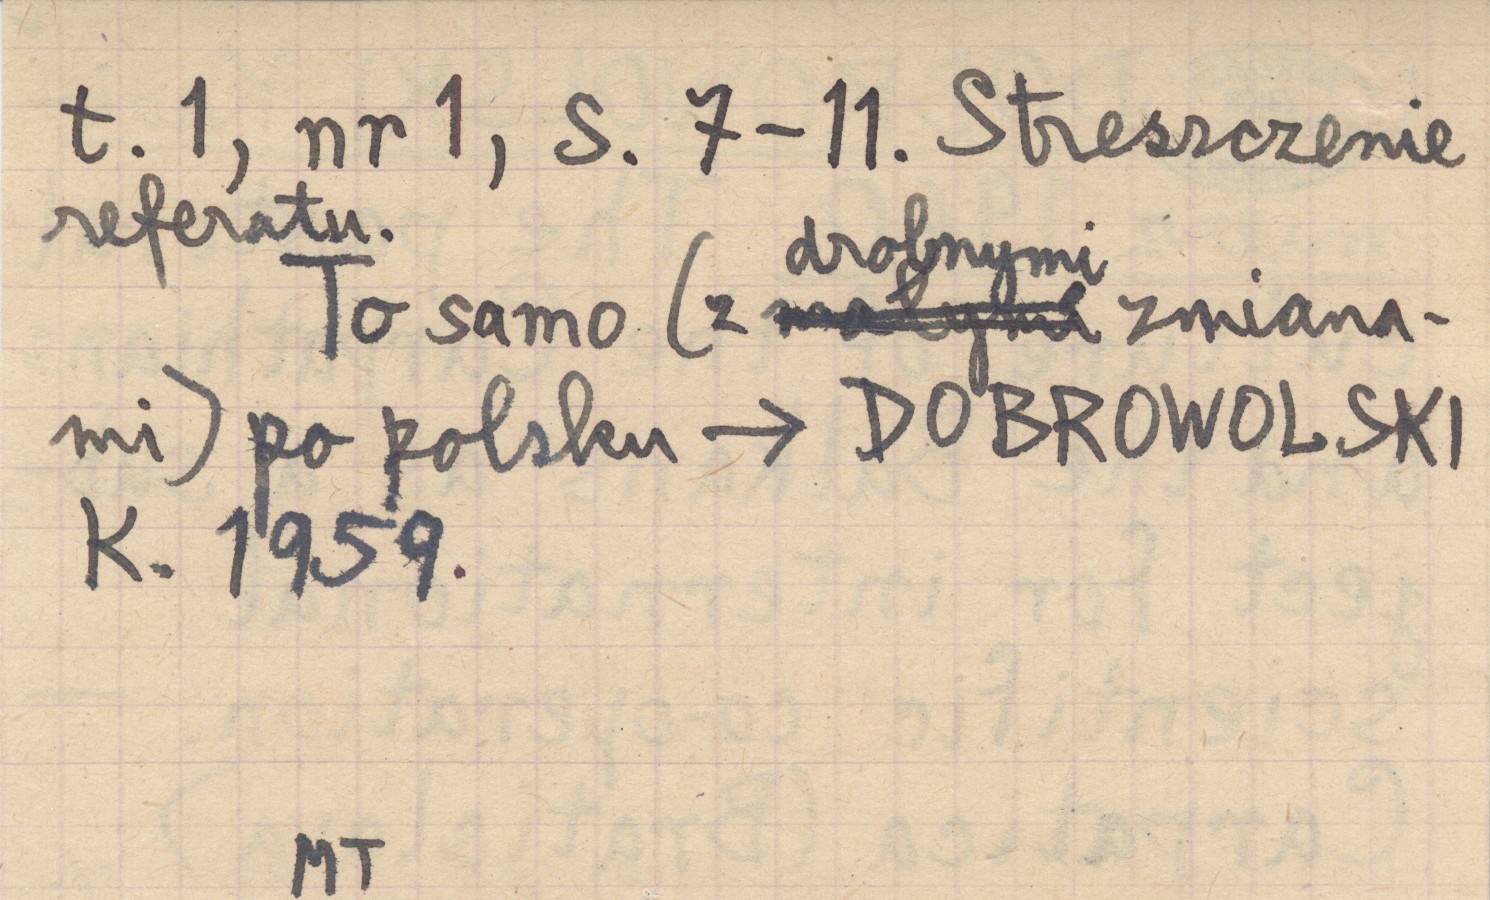 t. 1, nr 1, s. 7-11. Streszczenie
referatu.
To samo (z drobnymi zmiana-
mi) po polsku → DOBROWOLSKI
K. 1959.
MT